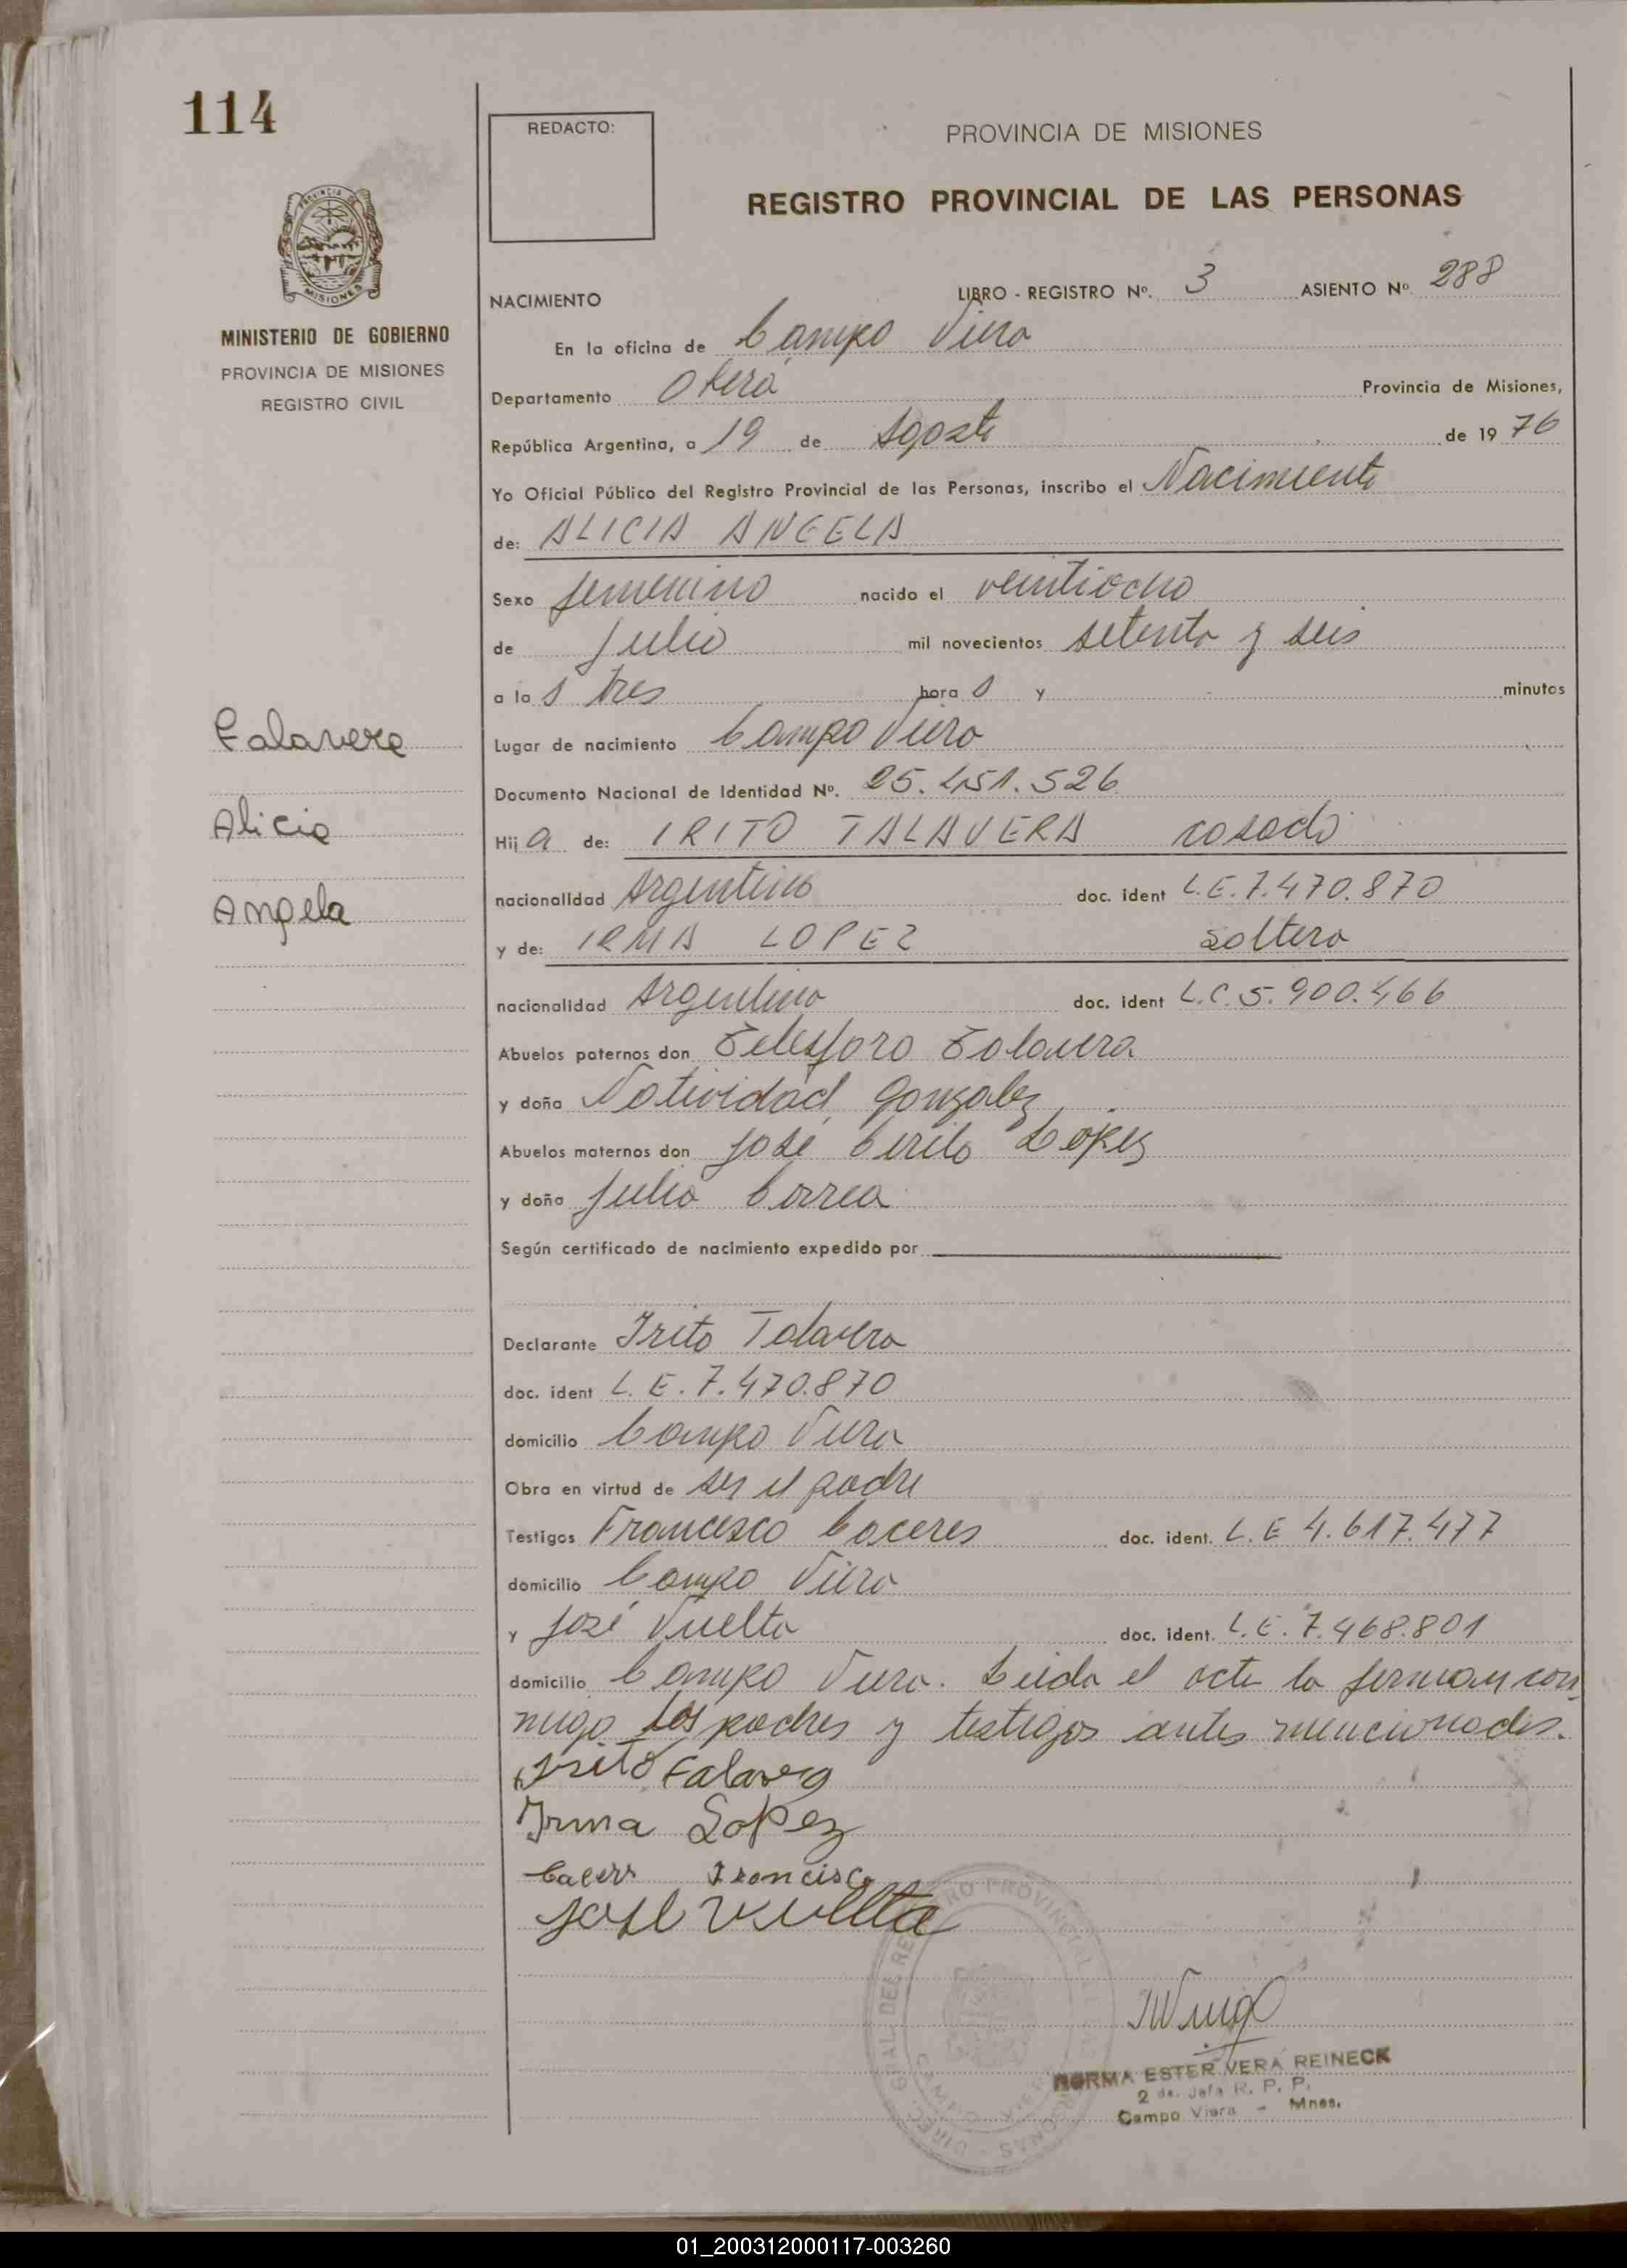 114
REDACTO:
PROVINCIA DE MISIONES
REGISTRO PROVINCIAL DE LAS PERSONAS
PROVINCIA DE
MISIONES
MINISTERIO DE GOBIERNO
PROVINCIA DE MISIONES
REGISTRO CIVIL
NACIMIENTO LIBRO - REGISTRO Nº. 3 ASIENTO Nº. 288
En la oficina de Campo Viera
Departamento Oberá Provincia de Misiones,
República Argentina, a 19 de Agosto de 19 76
Yo Oficial Público del Registro Provincial de las Personas, inscribo el Nacimiento
de: ALICIA ANGELA
Sexo femenino nacido el veintiocho
de Julio mil novecientos setenta y seis
a la s tres hora s y minutos
Talavera
Lugar de nacimiento Campo Viera
Documento Nacional de Identidad Nº. 25.451.526
Alicia
Hij a de: IRITO TALAVERA casado
nacionalidad Argentino doc. ident L.E. 7.470.870
Angela
y de: IRMA LOPEZ soltera
nacionalidad Argentina doc. ident L.C. 5.900.466
Abuelos paternos don Telesforo Talavera
y doña Natividad Gonzalez
Abuelos maternos don José Cirilo Lopez
y doña Julia Correa
Según certificado de nacimiento expedido por
Declarante Irito Talavera
doc. ident L.E. 7.470.870
domicilio Campo Viera
Obra en virtud de ser el padre
Testigos Francisco Caceres doc. ident. L.E 4.617.477
domicilio Campo Viera
y José Vuelta doc. ident. L.E. 7.468.801
domicilio Campo Viera. Leida el acta la firman con
migo los padres y testigos antes mencionados.
Irito Talavera
Irma Lopez
Francisco
José Vuelta
NORMA ESTER VERA REINECK
2 da. Jefa R. P. P.
Campo Viera - Mnes.
01_200312000117-003260